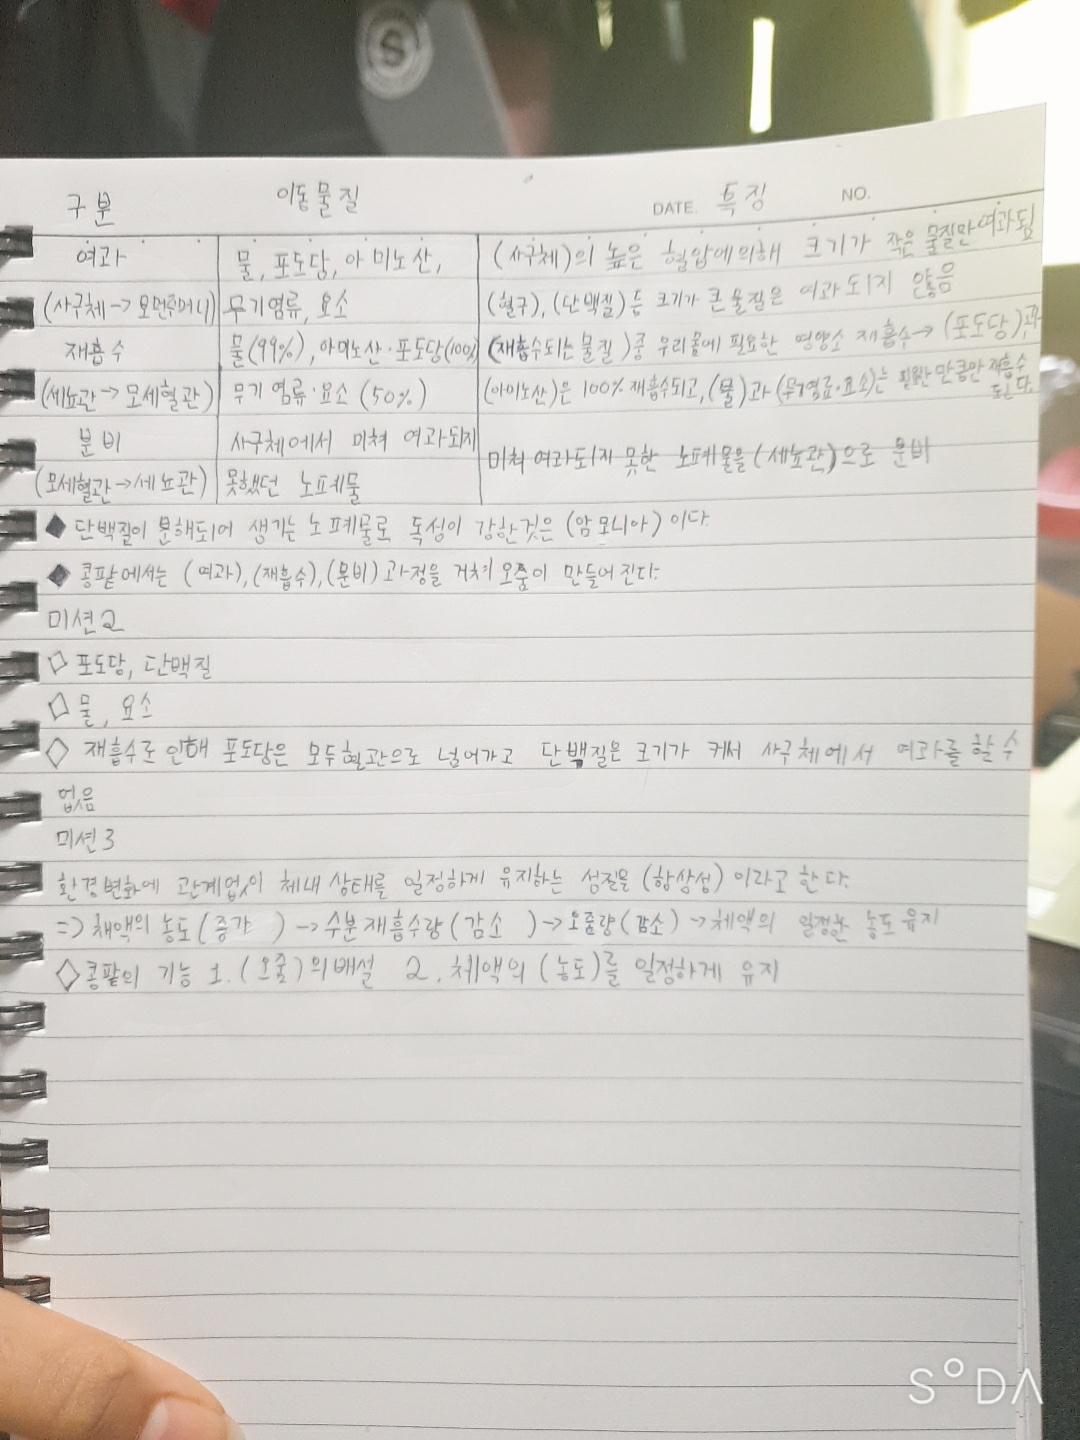 S
구분 이동물질 DATE. 특징 NO.
여과 물, 포도당, 아미노산, (사구체)의 높은 혈압에의해 크기가 작은 물질만여과됨
(사구체→보먼주머니) 무기염류, 요소 (혈구), (단백질) 등 크기가 큰물질은 여과되지 않음
재흡수 물(99%), 아미노산·포도당(100%) (재흡수되는물질)중 우리몸에 필요한 영양소 재흡수→(포도당)과
(세뇨관→모세혈관) 무기 염류·요소 (50%) (아미노산)은 100% 재흡수되고, (물)과 (무기염류·요소)는 필요한 만큼만 재흡수
된다.
분비 사구체에서 미쳐 여과되지 미처 여과되지 못한 노폐물을 (세뇨관)으로 분비
(모세혈관→세뇨관) 못했던 노폐물
◆ 단백질이 분해되어 생기는 노폐물로 독성이 강한것은 (암모니아) 이다.
◆ 콩팥에서는 (여과), (재흡수), (분비) 과정을 거쳐 오줌이 만들어진다.
미션2
◇ 포도당, 단백질
◇ 물, 요소
◇ 재흡수로 인해 포도당은 모두혈관으로 넘어가고 단백질은 크기가 커서 사구체에서 여과를 할 수
없음
미션3
환경변화에 관계없이 체내 상태를 일정하게 유지하는 성질을 (항상성) 이라고 한다.
=> 체액의 농도(증가 )→수분재흡수량(감소 )→오줌량(감소)→체액의 일정한 농도유지
◇콩팥의 기능 1. (오줌)의배설 2. 체액의 (농도)를 일정하게 유지
SODA